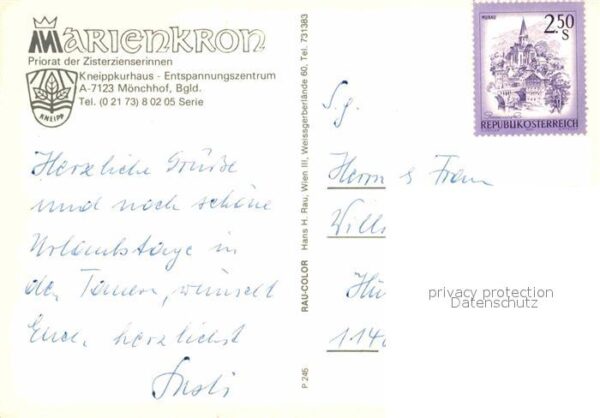 MARIENKRON
Priorat der Zisterzienserinnen
Kneippkurhaus - Entspannungszentrum
A-7123 Mönchhof, Bgld.
Tel. (0 21 73) 8 02 05 Serie
KNEIPP
Herzliche Grüße
und noch schöne
Urlaubstage in
den Tauern, wünscht
Euch herzlichst
RAU-COLOR Hans H. Rau, Wien III, Weissgerberlände 60, Tel. 731383
P 245
MURAU
2.50
S
REPUBLIK ÖSTERREICH
S.g.
Herrn & Frau
Willi
Hü
114
privacy protection
Datenschutz